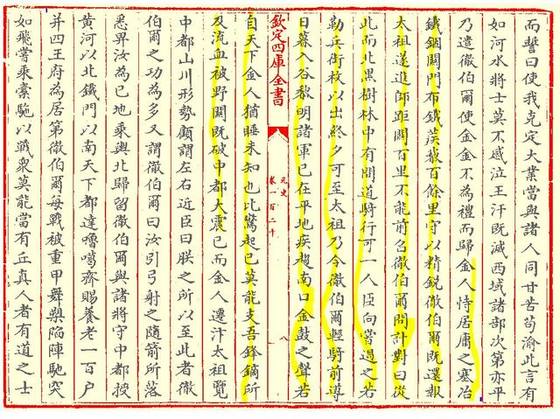 而誓曰使我克定大業當與諸人同甘苦苟渝此言有
如河水將士莫不感泣王汗既滅西域諸部次第亦平
乃遣徹伯爾使金金不為禮而歸金人恃居庸之塞冶
鐵錮關門布鐵蒺藜百餘里守以精銳徹伯爾既還報
太祖遂進師距關百里不能前召徹伯爾問計對曰從
此而北黒樹林中有間道騎行可一人臣向嘗過之若
勒兵銜枚以出終夕可至太祖乃令徹伯爾輕騎前導
日暮入谷黎明諸軍已在平地疾趨南口金鼓之聲若
欽定四庫全書
元史
卷一百二十
八
自天下金人猶睡未知也比驚起已莫能支吾鋒鏑所
及流血被野關既破中都大震已而金人遷汴太祖覽
中都山川形勢顧謂左右近臣曰朕之所以至此者徹
伯爾之功為多又謂徹伯爾曰汝引弓射之隨箭所落
悉畀汝為已地乗輿北歸留徹伯爾與諸將守中都授
黃河以北鐵門以南天下都達嚕噶齊賜養老一百户
并四王府為居第徹伯爾每戰被重甲舞槊陷陣馳突
如飛嘗乗橐駞以戰衆莫能當有丘真人者有道之士